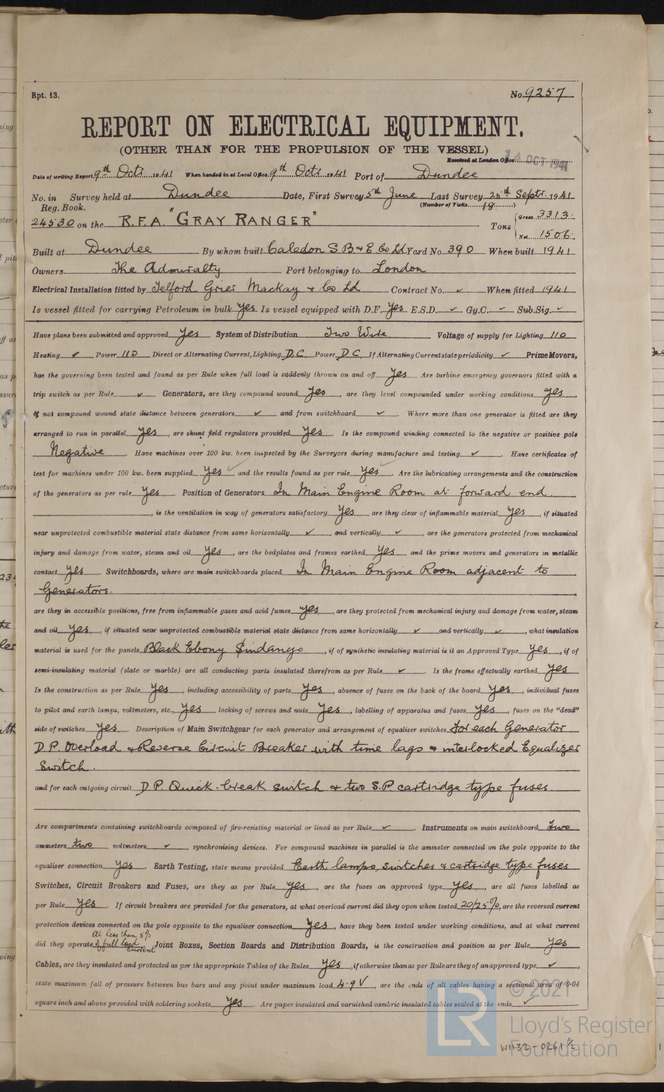 Rpt. 13. No. 9257
REPORT ON ELECTRICAL EQUIPMENT.
(OTHER THAN FOR THE PROPULSION OF THE VESSEL)
Received at London Office 14 OCT 1941
Date of writing Report 9th Octr. 1941 When handed in at Local Office 9th Octr. 1941 Port of Dundee
No. in Survey held at Dundee Date, First Survey 5th June Last Survey 25th Septr. 1941
Reg. Book. (Number of Visits 18)
24530 on the R.F.A. "GRAY RANGER" Tons { Gross 3313
Net 1506
Built at Dundee By whom built Caledon S.B. & E. Co Ld Yard No. 390 When built 1941
Owners The Admiralty Port belonging to London
Electrical Installation fitted by Telford Grier Mackay & Co Ld Contract No. ✓ When fitted 1941
Is vessel fitted for carrying Petroleum in bulk Yes Is vessel equipped with D.F. Yes E.S.D. ✓ Gy.C. ✓ Sub.Sig. ✓
Have plans been submitted and approved Yes System of Distribution Two Wire Voltage of supply for Lighting 110
Heating Power 110 Direct or Alternating Current, Lighting D.C. Power D.C. If Alternating Current state periodicity ✓ Prime Movers,
has the governing been tested and found as per Rule when full load is suddenly thrown on and off Yes Are turbine emergency governors fitted with a
trip switch as per Rule ✓ Generators, are they compound wound Yes, are they level compounded under working conditions Yes,
if not compound wound state distance between generators ✓ and from switchboard ✓ Where more than one generator is fitted are they
arranged to run in parallel Yes, are shunt field regulators provided Yes Is the compound winding connected to the negative or positive pole
Negative Have machines over 100 kw. been inspected by the Surveyors during manufacture and testing ✓ Have certificates of
test for machines under 100 kw. been supplied Yes and the results found as per rule Yes Are the lubricating arrangements and the construction
of the generators as per rule Yes Position of Generators In Main Engine Room at forward end.
, is the ventilation in way of generators satisfactory Yes, are they clear of inflammable material Yes, if situated
near unprotected combustible material state distance from same horizontally ✓ and vertically ✓, are the generators protected from mechanical
injury and damage from water, steam and oil Yes, are the bedplates and frames earthed Yes and the prime movers and generators in metallic
contact Yes Switchboards, where are main switchboards placed In Main Engine Room adjacent to
Generators.
are they in accessible positions, free from inflammable gases and acid fumes Yes, are they protected from mechanical injury and damage from water, steam
and oil Yes, if situated near unprotected combustible material state distance from same horizontally ✓ and vertically ✓, what insulation
material is used for the panels Black Ebony Sindanyo, if of synthetic insulating material is it an Approved Type Yes, if of
semi-insulating material (slate or marble) are all conducting parts insulated therefrom as per Rule ✓ Is the frame effectually earthed Yes
Is the construction as per Rule Yes, including accessibility of parts Yes, absence of fuses on the back of the board Yes, individual fuses
to pilot and earth lamps, voltmeters, etc. Yes locking of screws and nuts Yes, labelling of apparatus and fuses Yes, fuses on the "dead"
side of switches Yes Description of Main Switchgear for each generator and arrangement of equaliser switches For each Generator
D.P. Overload & Reverse Circuit Breaker with time lags & interlocked Equalizer
Switch.
and for each outgoing circuit D.P. Quick-break switch & two S.P. cartridge type fuses
Are compartments containing switchboards composed of fire-resisting material or lined as per Rule ✓ Instruments on main switchboard two
ammeters two voltmeters ✓ synchronising devices. For compound machines in parallel is the ammeter connected on the pole opposite to the
equaliser connection Yes Earth Testing, state means provided Earth lamps, switches & cartridge type fuses
Switches, Circuit Breakers and Fuses, are they as per Rule Yes, are the fuses an approved type Yes, are all fuses labelled as
per Rule Yes If circuit breakers are provided for the generators, at what overload current did they open when tested 20/25%, are the reversed current
protection devices connected on the pole opposite to the equaliser connection Yes, have they been tested under working conditions, and at what current
At less than 5%
did they operate of full load current Joint Boxes, Section Boards and Distribution Boards, is the construction and position as per Rule Yes
Cables, are they insulated and protected as per the appropriate Tables of the Rules Yes, if otherwise than as per Rule are they of an approved type ✓,
state maximum fall of pressure between bus bars and any point under maximum load 4.9 V, are the ends of all cables having a sectional area of 0.04
square inch and above provided with soldering sockets Yes Are paper insulated and varnished cambric insulated cables sealed at the ends ✓
© 2021
LR Lloyd's Register
Foundation
W1132-0261 1/2